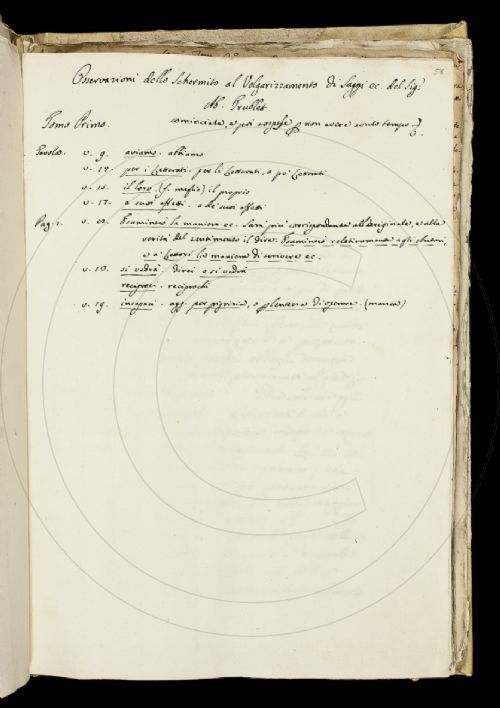 58
Osservazioni dello Schermito al Volgarizzamento di Saggi ec. del Sig.r
Ab. Trublet
Tomo Primo. cominciate, e poi sospese p non avere avuto tempo
Tavola. v. 9. aviamo. abbiamo
v. 14. per i Letterati. per li Letterati, o pe' Letterati
v. 15. il loro (f. meglio) il proprio
v. 17. a suoi effetti. o de' suoi effetti
Pag. 1. v. Esaminerò la maniera ec. Sarà più corrispondente all'originale, e alla
verità del sentimento il dire: Esaminerò relativamente agli
e a' Lettori la maniera di scrivere ec.
v. 10. si vedrà direi e si vedrà
reciproci. reciprochi
v. 19. incapaci. agg. per pigrizia, o p lentezza di operare. (manca)